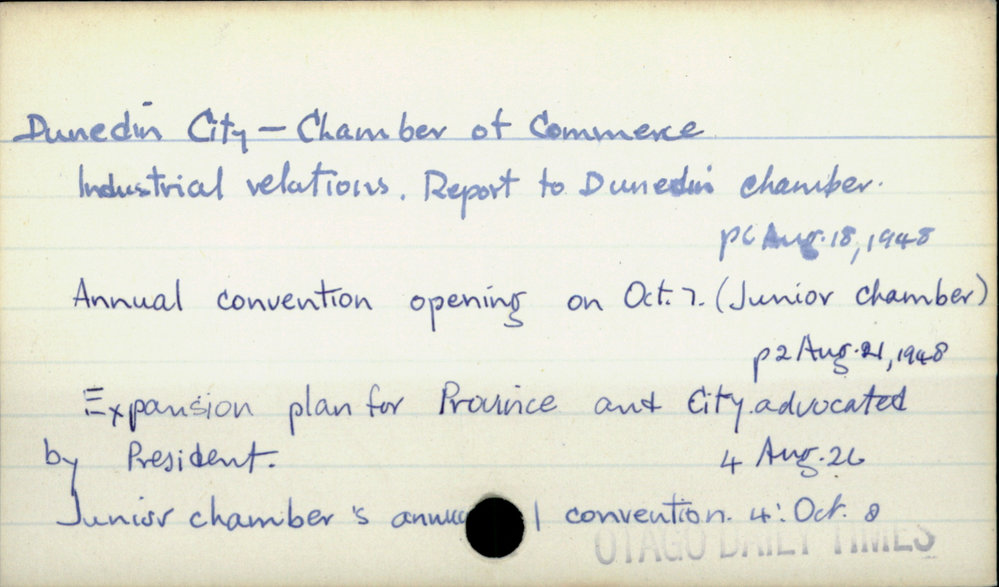 Dunedin City - Chamber of Commerce
Industrial relations. Report to Dunedin chamber.
p6 Aug. 18, 1948
Annual convention opening on Oct. 7. (Junior chamber)
p2 Aug. 21, 1948
Expansion plan for Province and City advocated
by President. 4 Aug. 26
Junior chamber's annual convention. 4: Oct. 8
OTAGO DAILY TIMES